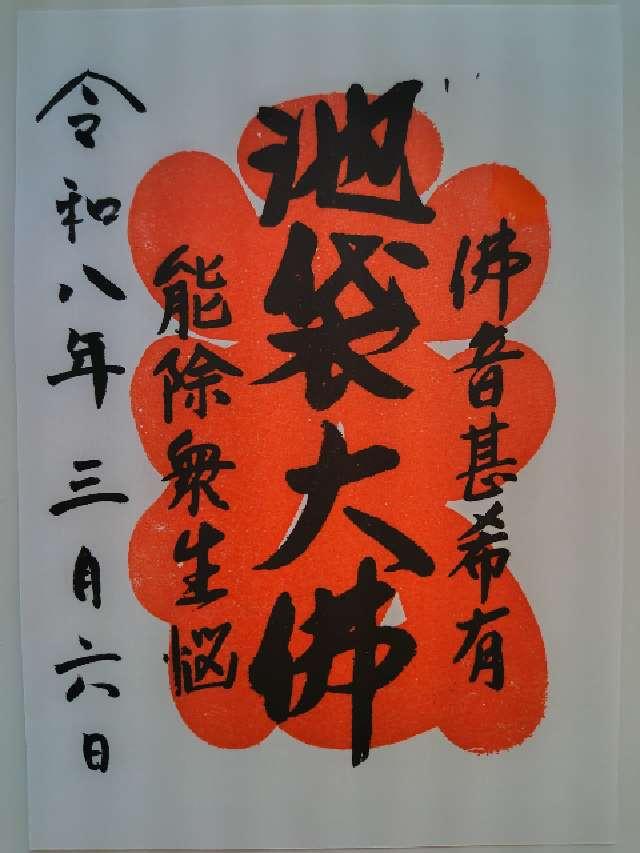 佛音甚希有
池袋大佛
能除衆生悩
令和八年三月六日